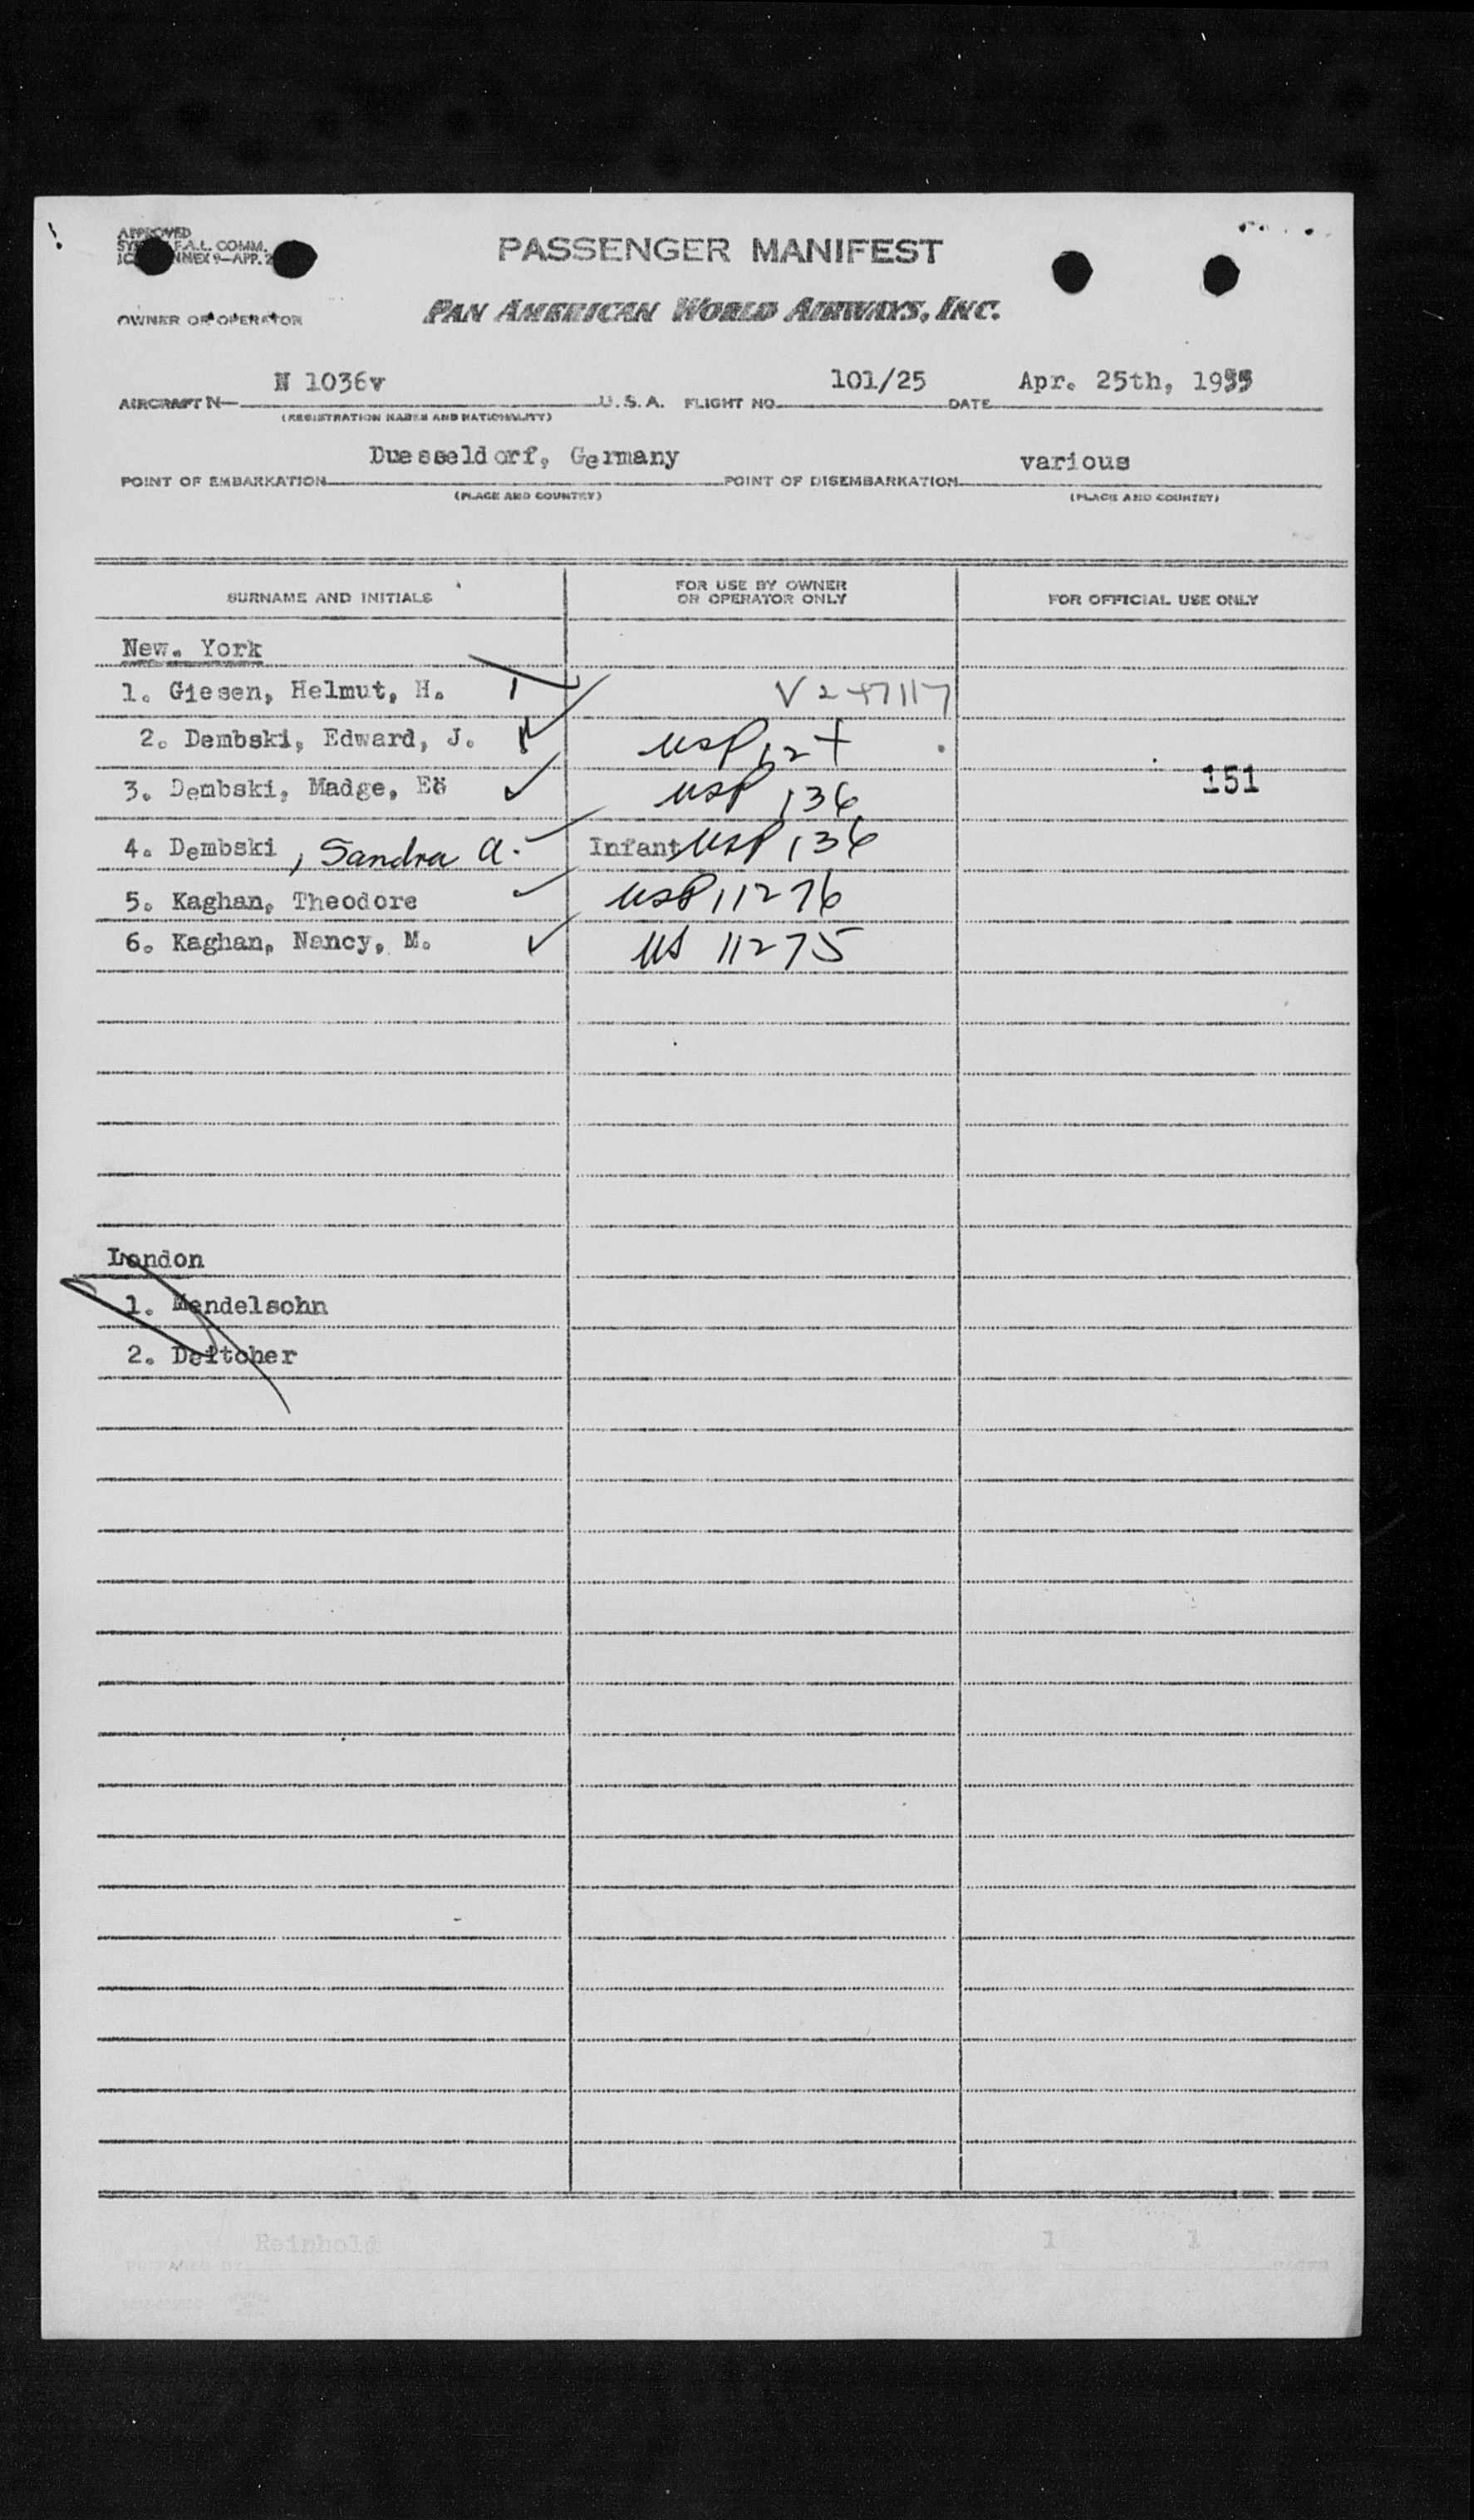 APPROVED
F.A.L. COMM.
ANNEX 9—APP. 2
PASSENGER MANIFEST
OWNER OR OPERATOR PAN AMERICAN WORLD AIRWAYS, INC.
N 1036v 101/25 Apr. 25th, 1955
AIRCRAFT N— U.S.A. FLIGHT NO. DATE
(REGISTRATION MARKS AND NATIONALITY)
Duesseldorf, Germany various
POINT OF EMBARKATION POINT OF DISEMBARKATION
(PLACE AND COUNTRY) (PLACE AND COUNTRY)
SURNAME AND INITIALS FOR USE BY OWNER OR OPERATOR ONLY FOR OFFICIAL USE ONLY
New. York
1. Giesen, Helmut, H.
2. Dembski, Edward, J. USP
3. Dembski, Madge, E USP 136 151
4. Dembski, Sandra A. Infant USP 136
5. Kaghan, Theodore USP 11276
6. Kaghan, Nancy, M. US 11275
London
1. Mendelsohn
2. Deitcher
Reinhold 1 1
PREPARED BY PAGES